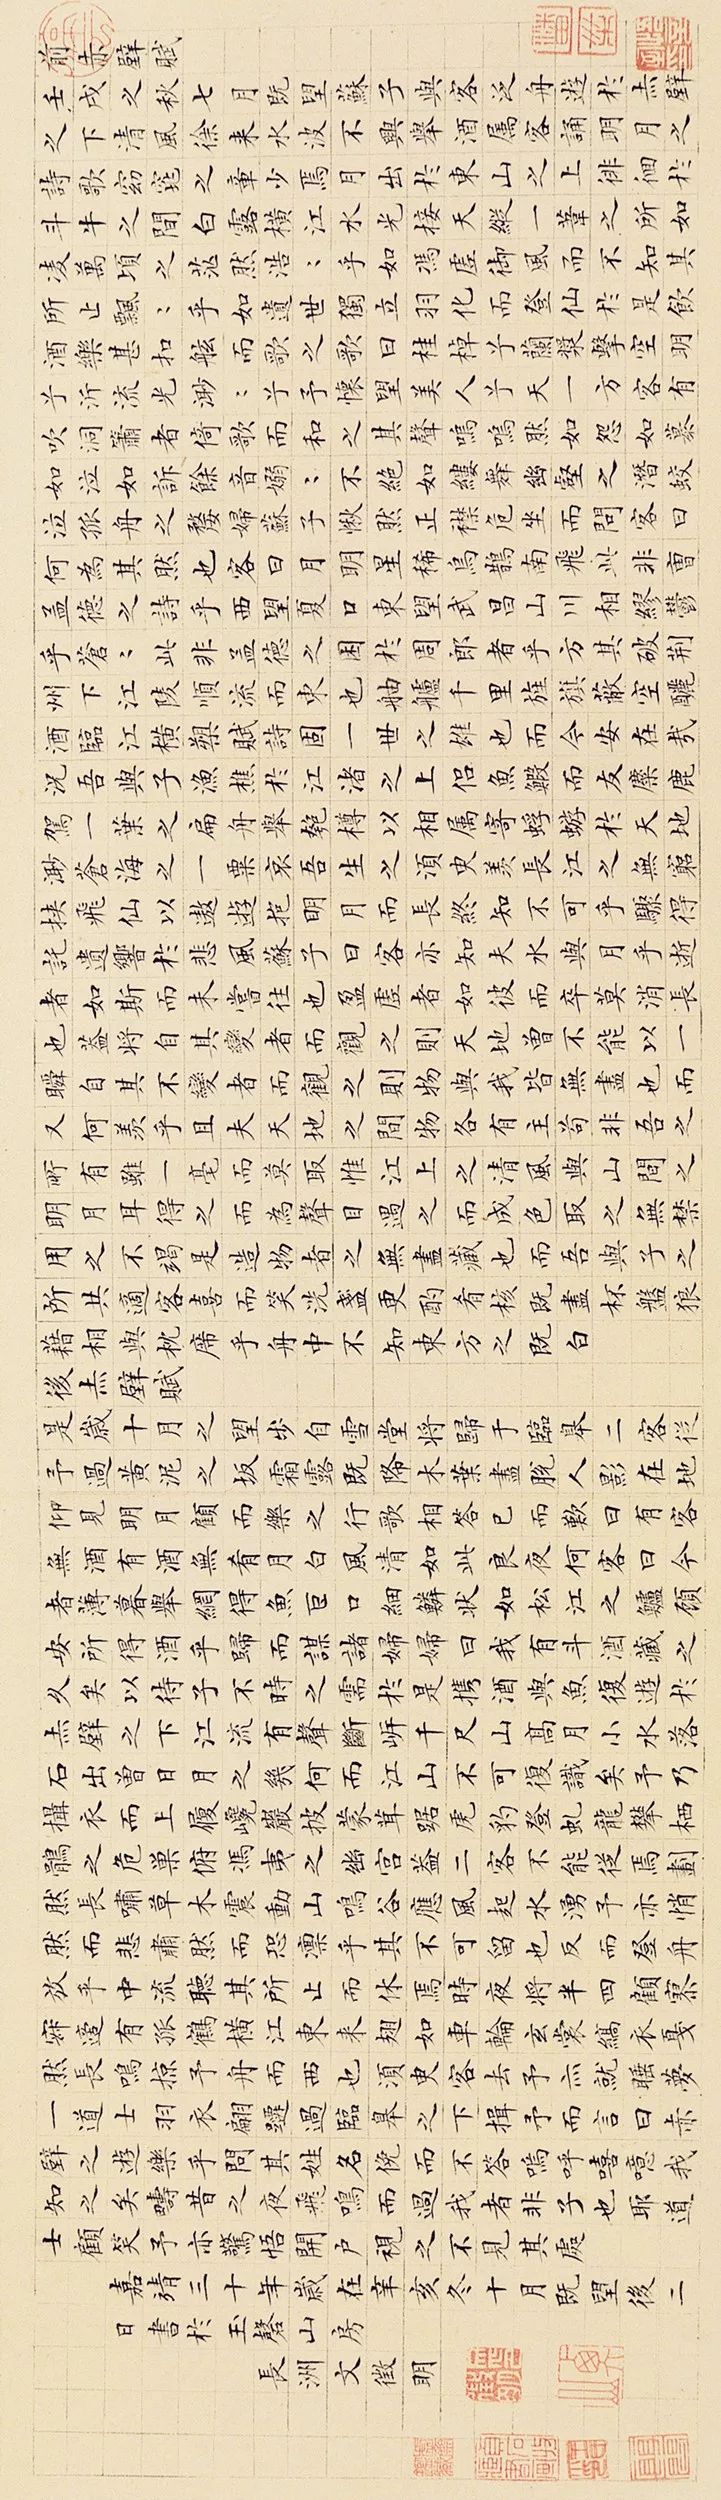 前赤壁賦
壬戌之秋七月既望蘇子與客泛舟遊於赤壁
之下清風徐來水波不興舉酒屬客誦明月之
詩歌窈窕之章少焉月出於東山之上徘徊於
斗牛之間白露橫江水光接天縱一葦之所如
凌萬頃之茫然浩〻乎如馮虛御風而不知其
所止飄〻乎如遺世獨立羽化而登仙於是飲
酒樂甚扣舷而歌之歌曰桂棹兮蘭槳擊空明
兮泝流光渺〻兮予懷望美人兮天一方客有
吹洞簫者倚歌而和之其聲嗚嗚然如怨如慕
如泣如訴餘音嫋〻不絕如縷舞幽壑之潛蛟
泣孤舟之嫠婦蘇子愀然正襟危坐而問客曰
何為其然也客曰月明星稀烏鵲南飛此非曹
孟德之詩乎西望夏口東望武昌山川相繆鬱
乎蒼〻此非孟德之困於周郎者乎方其破荊
州下江陵順流而東也舳艫千里旌旗蔽空釃
酒臨江橫槊賦詩固一世之雄也而今安在哉
況吾與子漁樵於江渚之上侶魚鰕而友麋鹿
駕一葉之扁舟舉匏樽以相屬寄蜉蝣於天地
渺蒼海之一粟哀吾生之須臾羨長江之無窮
挾飛仙以遨遊抱明月而長終知不可乎驟得
託遺響於悲風蘇子曰客亦知夫水與月乎逝
者如斯而未嘗往也盈虛者如彼而卒莫消長
也蓋將自其變者而觀之則天地曾不能以一
瞬自其不變者而觀之則物與我皆無盡也而
又何羨乎且夫天地之間物各有主苟非吾之
所有雖一毫而莫取惟江上之清風與山間之
明月耳得之而為聲目遇之而成色取之無禁
用之不竭是造物者之無盡藏也而吾與子之
所共適客喜而笑洗盞更酌肴核既盡杯盤狼
藉相與枕席乎舟中不知東方之既白
後赤壁賦
是歲十月之望步自雪堂將歸于臨皋二客從
予過黃泥之坂霜露既降木葉盡脫人影在地
仰見明月顧而樂之行歌相答已而歎曰有客
無酒有酒無肴月白風清如此良夜何客曰今
者薄暮舉網得魚巨口細鱗狀如松江之鱸顧
安所得酒乎歸而謀諸婦婦曰我有斗酒藏之
久矣以待子不時之需於是攜酒與魚復遊於
赤壁之下江流有聲斷岸千尺山高月小水落
石出曾日月之幾何而江山不可復識矣予乃
攝衣而上履巉巖披蒙茸踞虎豹登虬龍攀栖
鶻之危巢俯馮夷之幽宮蓋二客不能從焉劃
然長嘯草木震動山鳴谷應風起水湧予亦悄
然而悲肅然而恐凜乎其不可留也反而登舟
放乎中流聽其所止而休焉時夜將半四顧寂
寥適有孤鶴橫江東來翅如車輪玄裳縞衣戛
然長鳴掠予舟而西也須臾客去予亦就睡夢
一道士羽衣翩躚過臨皋之下揖予而言曰赤
壁之遊樂乎問其姓名俛而不答嗚呼噫嘻我
知之矣疇昔之夜飛鳴而過我者非子也耶道
士顧笑予亦驚悟開戶視之不見其處
嘉靖三十年歲在辛亥冬十月既望後二
日書於玉磬山房
長洲文徵明